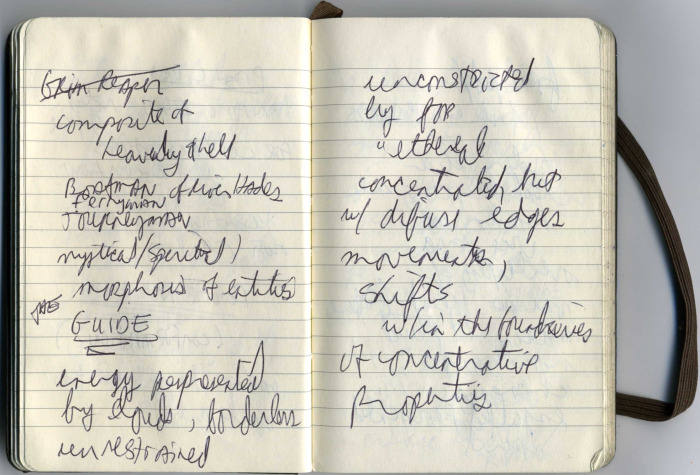 Grim Reaper
composite of
heavenly & hell
Boatman of River Hades
ferryman
Journeyman
mystical/spiritual/
morphosis of entities
THE
GUIDE
energy represented
by clouds, borderless
unrestrained
unconstricted
by for
"ethereal
concentrated, but
w/ diffuse edges
movements,
shifts
w/in the boundaries
of concentrative
Properties